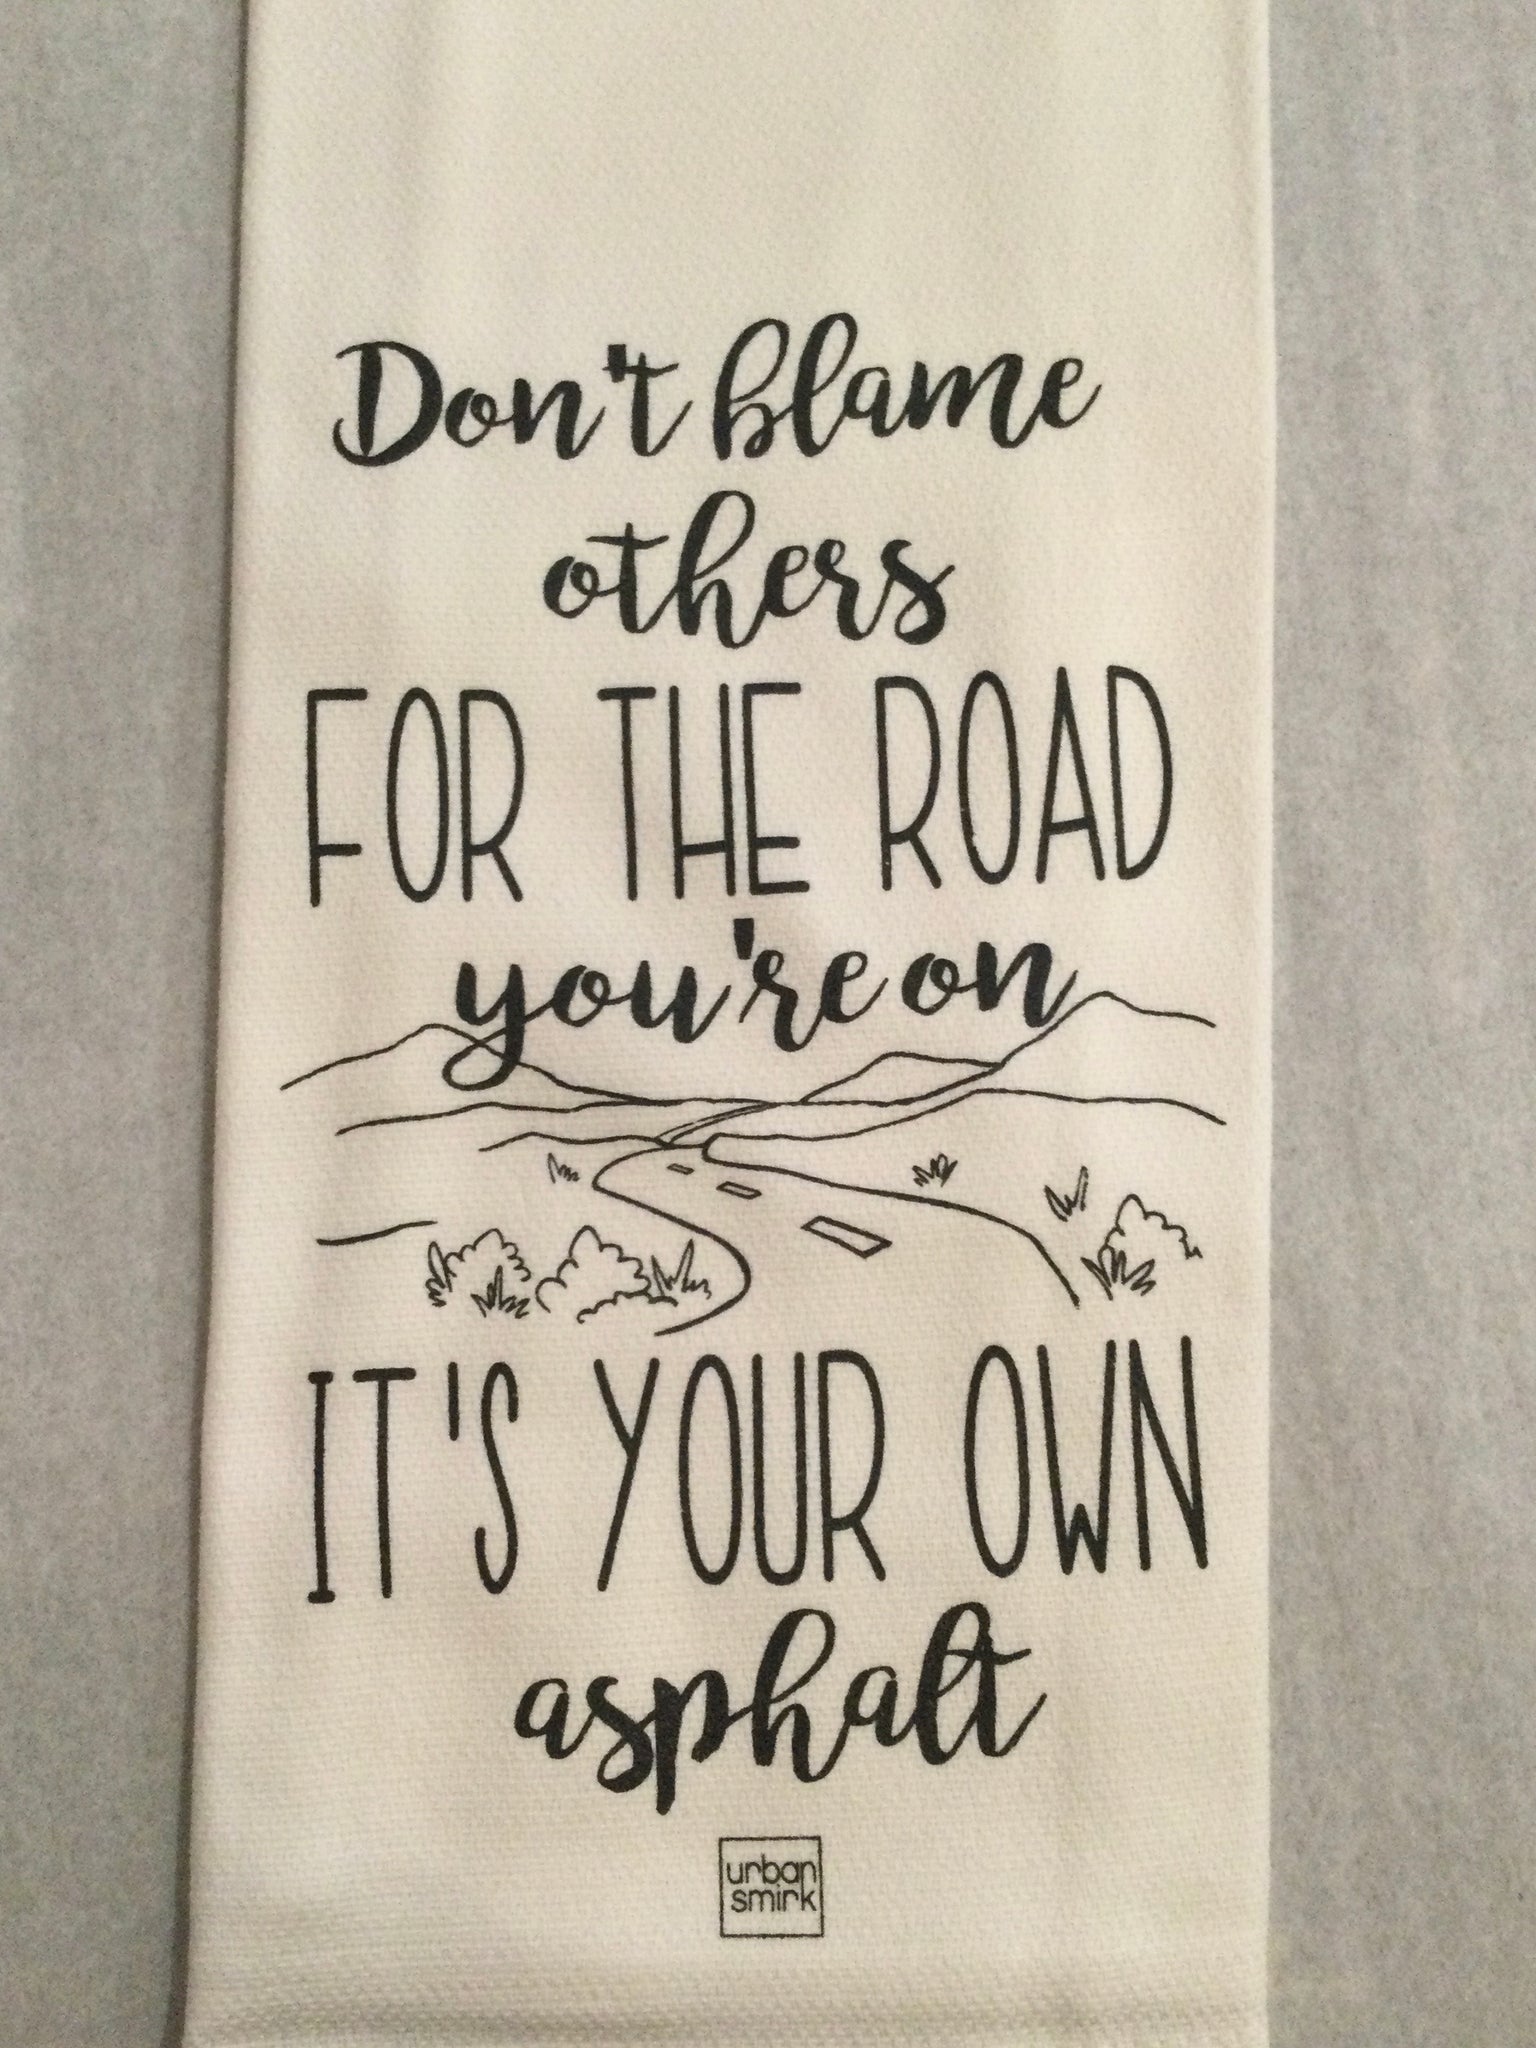 Don't blame
others
FOR THE ROAD
you're on
IT'S YOUR OWN
asphalt
urban
smirk